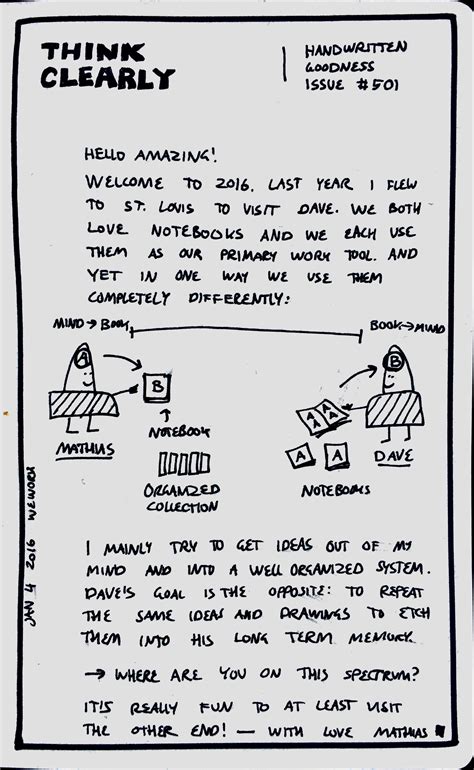 THINK
CLEARLY
HANDWRITTEN
GOODNESS
ISSUE #501
HELLO AMAZING!
WELCOME TO 2016. LAST YEAR I FLEW
TO ST. LOUIS TO VISIT DAVE. WE BOTH
LOVE NOTEBOOKS AND WE EACH USE
THEM AS OUR PRIMARY WORK TOOL. AND
YET IN ONE WAY WE USE THEM
COMPLETELY DIFFERENTLY:
MIND → BOOK
BOOK → MIND
A
B
B
A A
A A
MATHIAS
NOTEBOOK
A A
DAVE
ORGANIZED
COLLECTION
NOTEBOOKS
I MAINLY TRY TO GET IDEAS OUT OF MY
MIND AND INTO A WELL ORGANIZED SYSTEM.
DAVE'S GOAL IS THE OPPOSITE: TO REPEAT
THE SAME IDEAS AND DRAWINGS TO ETCH
THEM INTO HIS LONG TERM MEMORY.
→ WHERE ARE YOU ON THIS SPECTRUM?
IT'S REALLY FUN TO AT LEAST VISIT
THE OTHER END! — WITH LOVE MATHIAS
JAN 4 2016 WEWORK